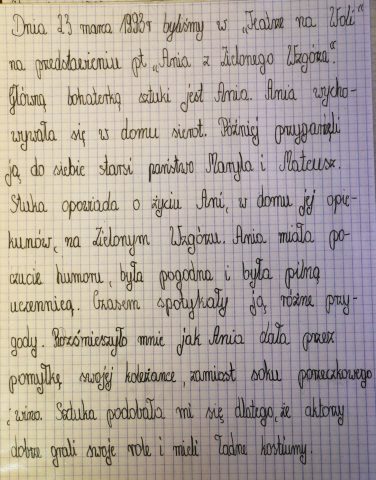 Dnia 23 marca 1993r byliśmy w „Teatrze na Woli"
na przedstawieniu pt. „Ania z Zielonego Wzgórza".
Główną bohaterką sztuki jest Ania. Ania wycho-
wywała się w domu sierot. Później przygarnęli
ją do siebie starsi państwo Maryla i Mateusz.
Stuka opowiada o życiu Ani, w domu jej opie-
kunów, na Zielonym Wzgórzu. Ania miała po-
czucie humoru, była pogodna i była pilną
uczennicą. Czasem spotykały ją różne przy-
gody. Rozśmieszyło mnie jak Ania dała przez
pomyłkę swojej koleżance, zamiast soku porzeczkowego
, wino. Sztuka podobała mi się dlatego, że aktorzy
dobrze grali swoje role i mieli ładne kostiumy.